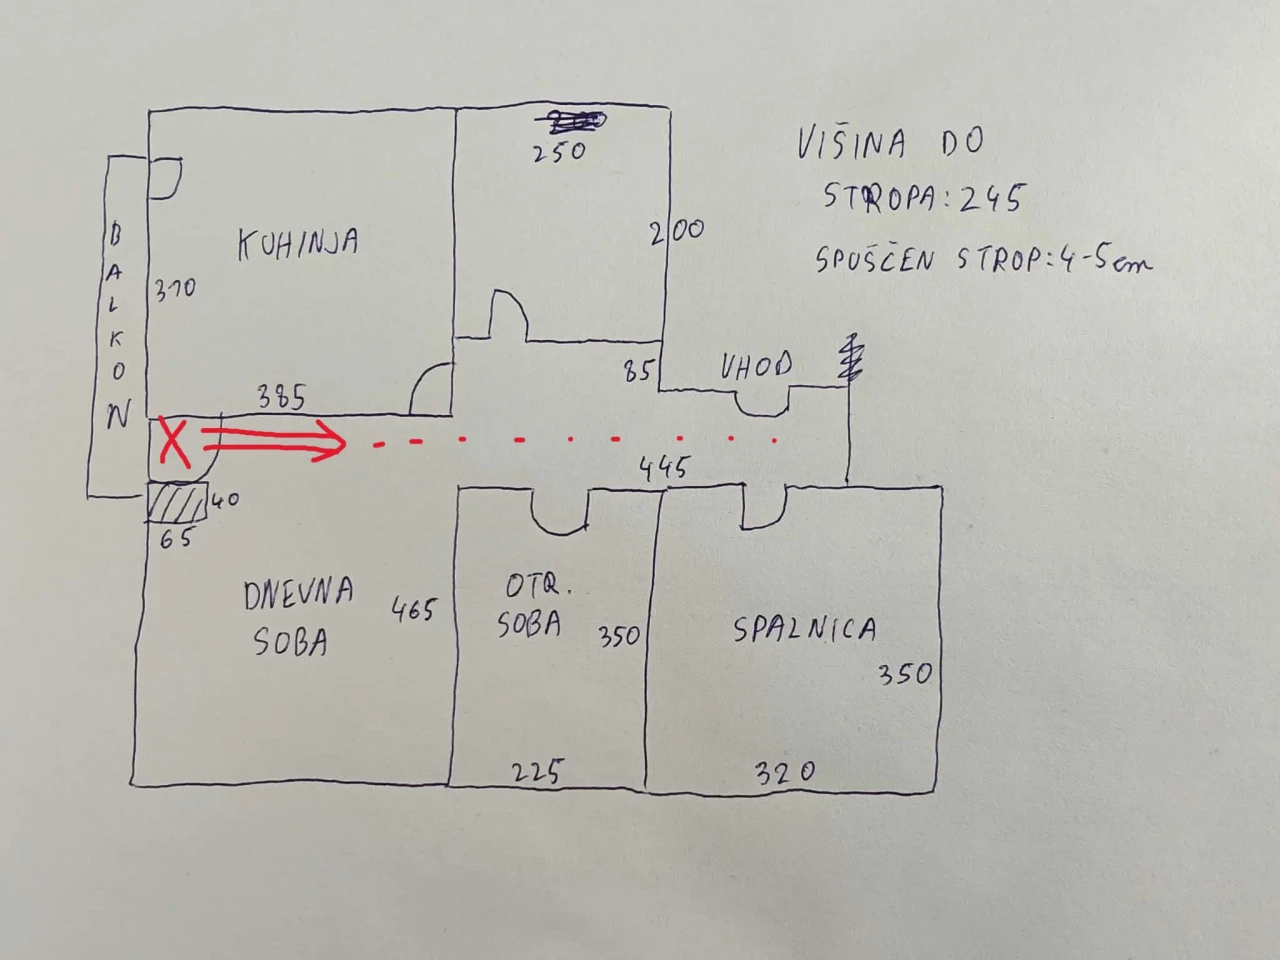 250
VIŠINA DO
STROPA: 245
SPUŠČEN STROP: 4-5cm
200
BALKON
KUHINJA
370
385
85
VHOD
X
445
40
65
DNEVNA
SOBA
465
OTR.
SOBA
350
SPALNICA
350
225
320